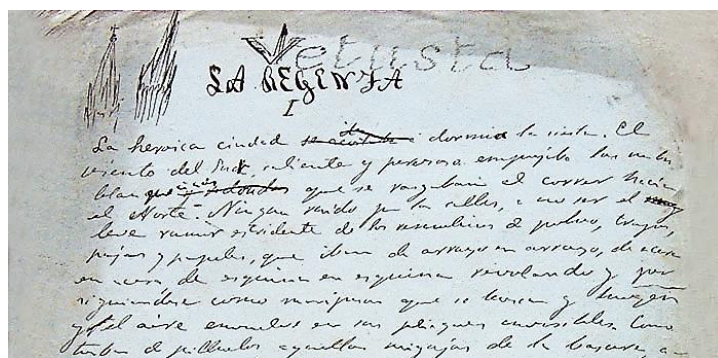 Vetusta
LA REGENTA
I
La heroica ciudad dormia la siesta. El
viento del Sur, caliente y perezoso empujaba las nubes
blanquecinas que se rasgaban al correr hacia
el Norte. Ningun ruido por las calles, a no ser el
leve rumor estridente de los remolinos de polvo, trapos,
pajas y papeles, que iban de arroyo en arroyo, de acera
en acera, de esquina en esquina revolando y per
siguiendose como mariposas que se buscan y huyen
y el aire envuelve en sus pliegues invisibles. Como
turbas de pilluelos aquellas migajas de la basura, a